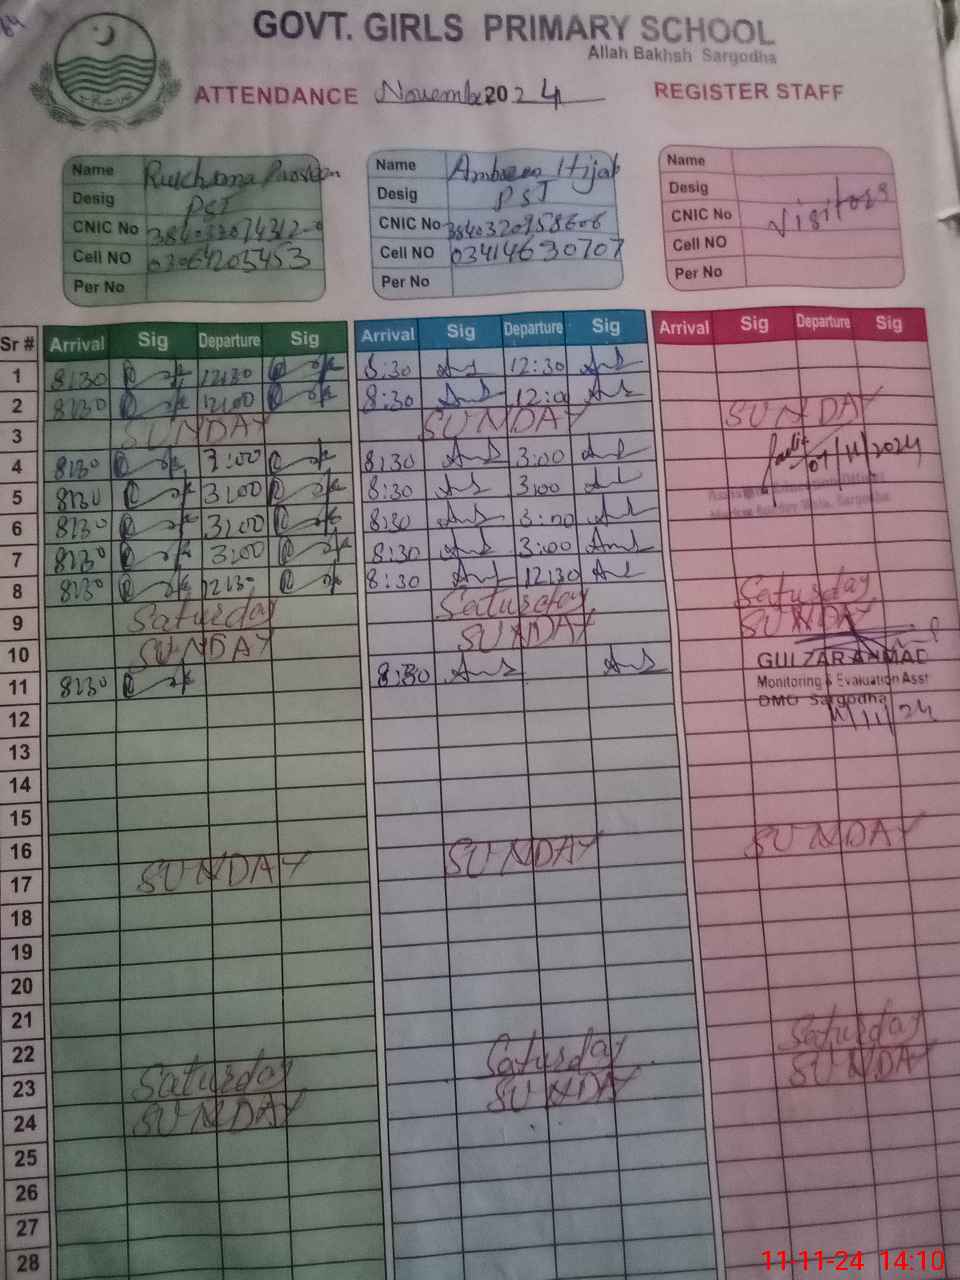 GOVT. GIRLS PRIMARY SCHOOL
Allah Bakhsh Sargodha
ATTENDANCE November 2024 REGISTER STAFF
Name Rukhsana Parveen
Desig PST
CNIC No
Cell NO 03064203453
Per No
Name Ambreen Hijab
Desig PST
CNIC No 3840320958606
Cell NO 03414630707
Per No
Name
Desig
CNIC No Visitors
Cell NO
Per No
Sr # Arrival Sig Departure Sig Arrival Sig Departure Sig Arrival Sig Departure Sig
1 8:30 12:30 8:30 12:30
2 8:30 12:00 8:30 12:00
3 SUNDAY SUNDAY SUNDAY
4 8:30 3:00 8:30 3:00 07/11/2024
5 8:30 3:00 8:30 3:00
6 8:30 3:00 8:30 3:00
7 8:30 3:00 8:30 3:00
8 8:30 12:30 8:30 12:30
9 Saturday Saturday Saturday
10 SUNDAY SUNDAY SUNDAY
11 8:30 8:30
GULZAR AHMAD
Monitoring & Evaluation Asst
DMO Sargodha
11/11/24
12
13
14
15
16
17 SUNDAY SUNDAY SUNDAY
18
19
20
21
22
23 Saturday Saturday Saturday
24 SUNDAY SUNDAY SUNDAY
25
26
27
28
11-11-24 14:10